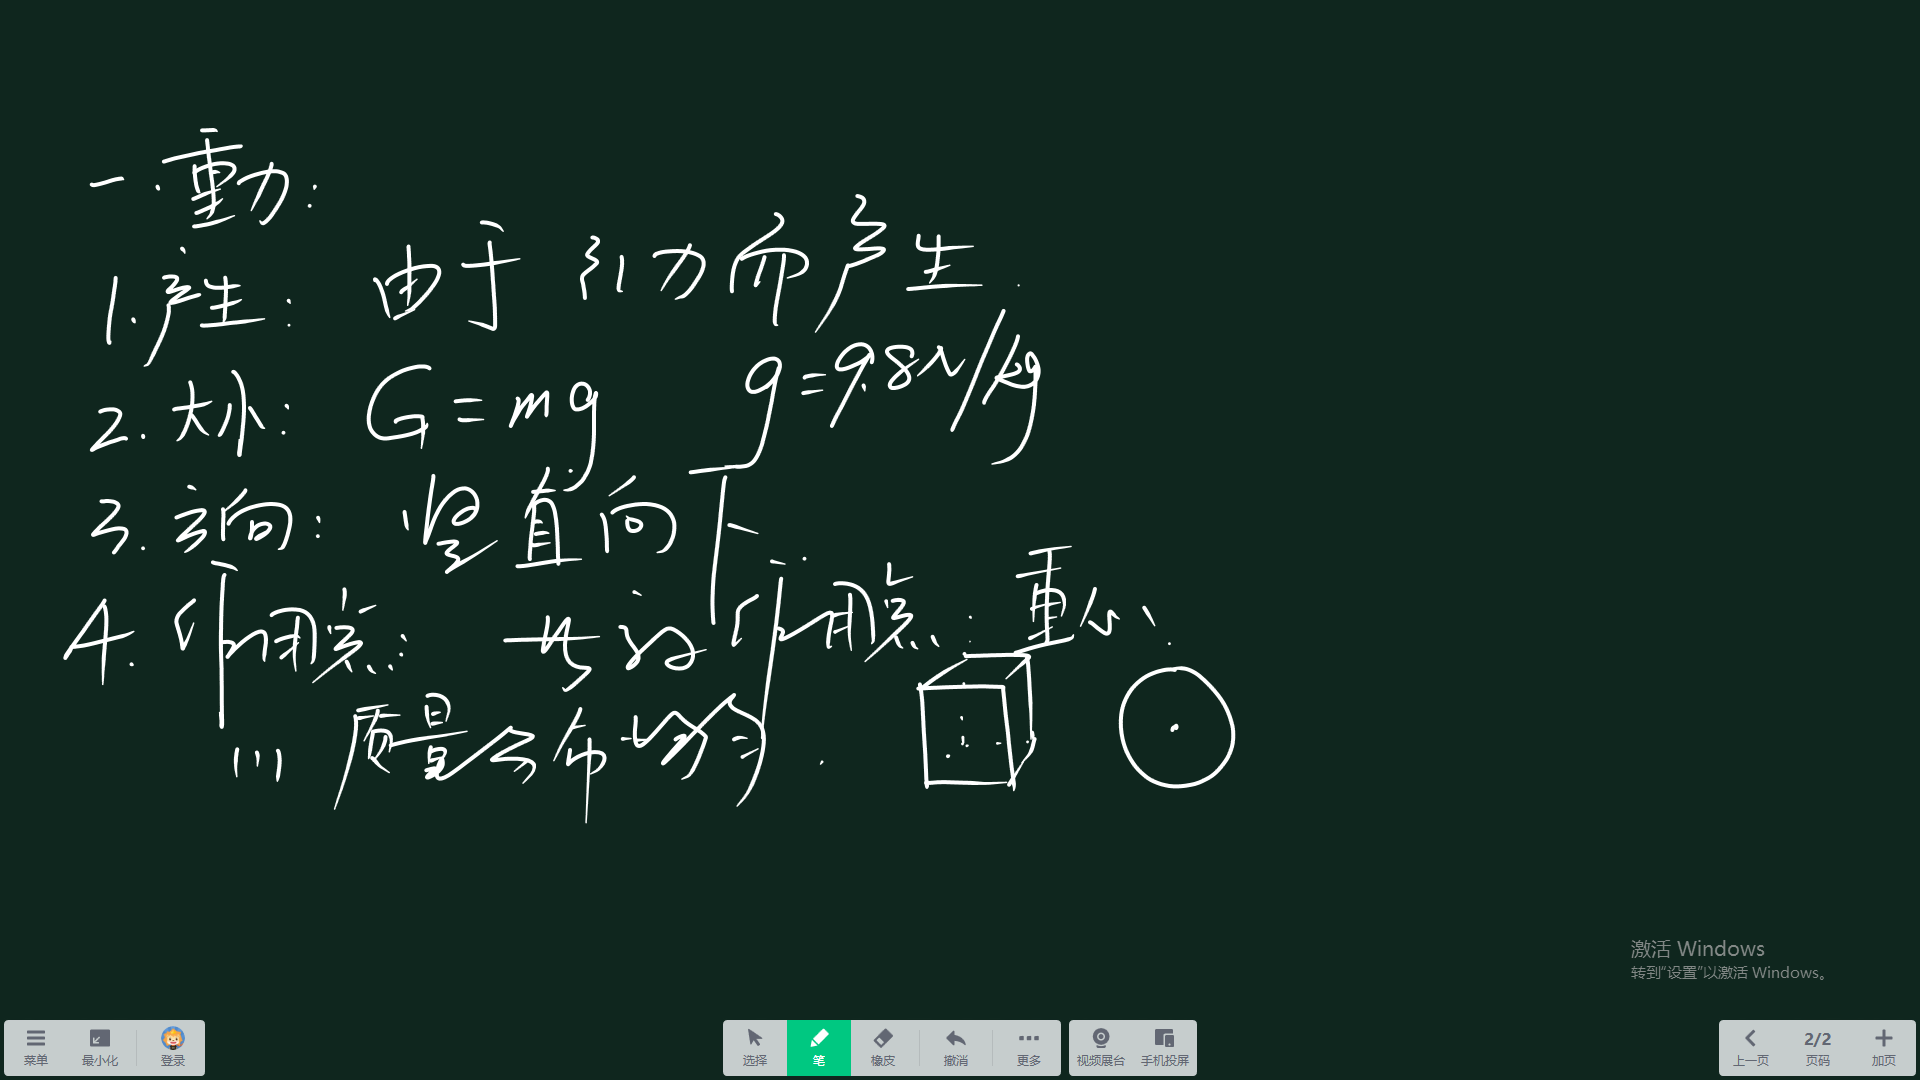 一.重力:
1.产生: 由于引力而产生.
2.大小: G=mg g=9.8N/kg
3.方向: 竖直向下.
4.作用点: 力的作用点: 重心.
(1) 质量分布均匀.
激活 Windows
转到“设置”以激活 Windows。
菜单 最小化 登录 选择 笔 橡皮 撤消 更多 视频展台 手机投屏 上一页 2/2 页码 加页